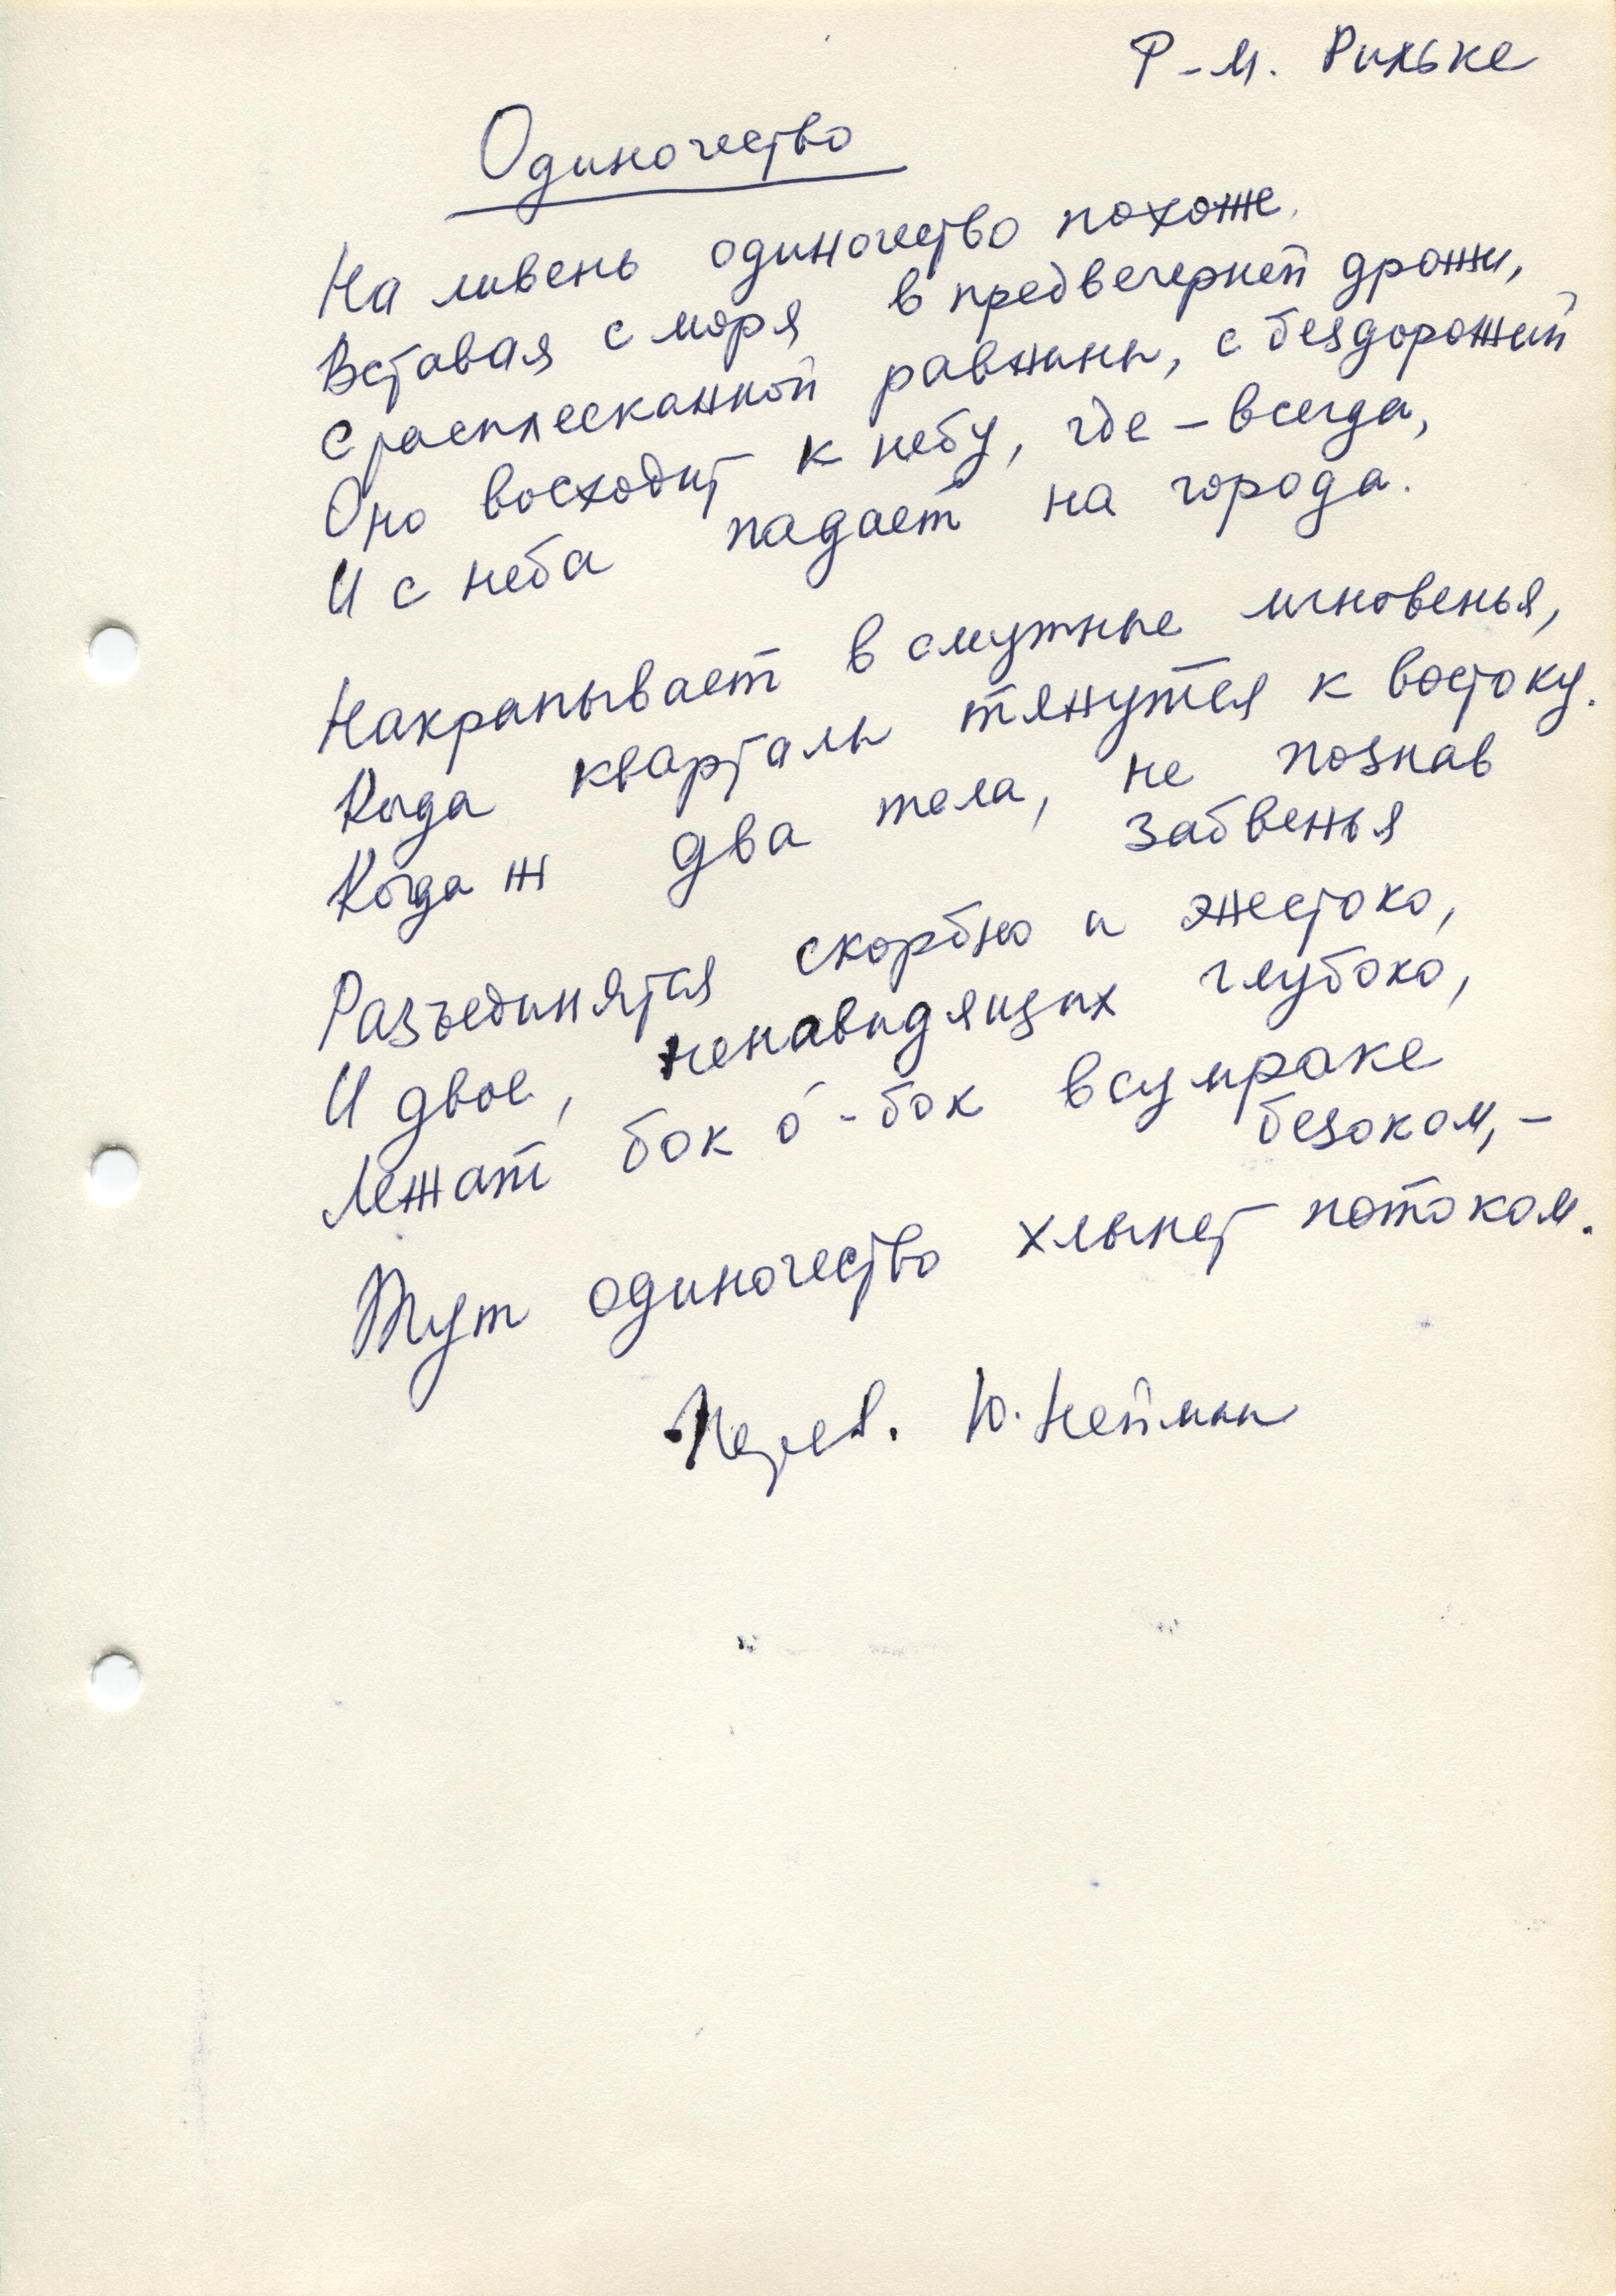 Р-М. Рильке
Одиночество
На ливень одиночество похоже.
Вставая с моря в предвечерней дрожи,
С расплесканной равнины, с бездорожий
Оно восходит к небу, где – всегда,
И с неба падает на города.
Накрапывает в смутные мгновенья,
Когда кварталы тянутся к востоку.
Когда ж два тела, не познав
забвенья
Разъединятся скорбно и жестоко,
И двое, ненавидящих глубоко,
Лежат бок о́-бок в сумраке
безоком, –
Тут одиночество хлынет потоком.
Перев. Ю. Нейман